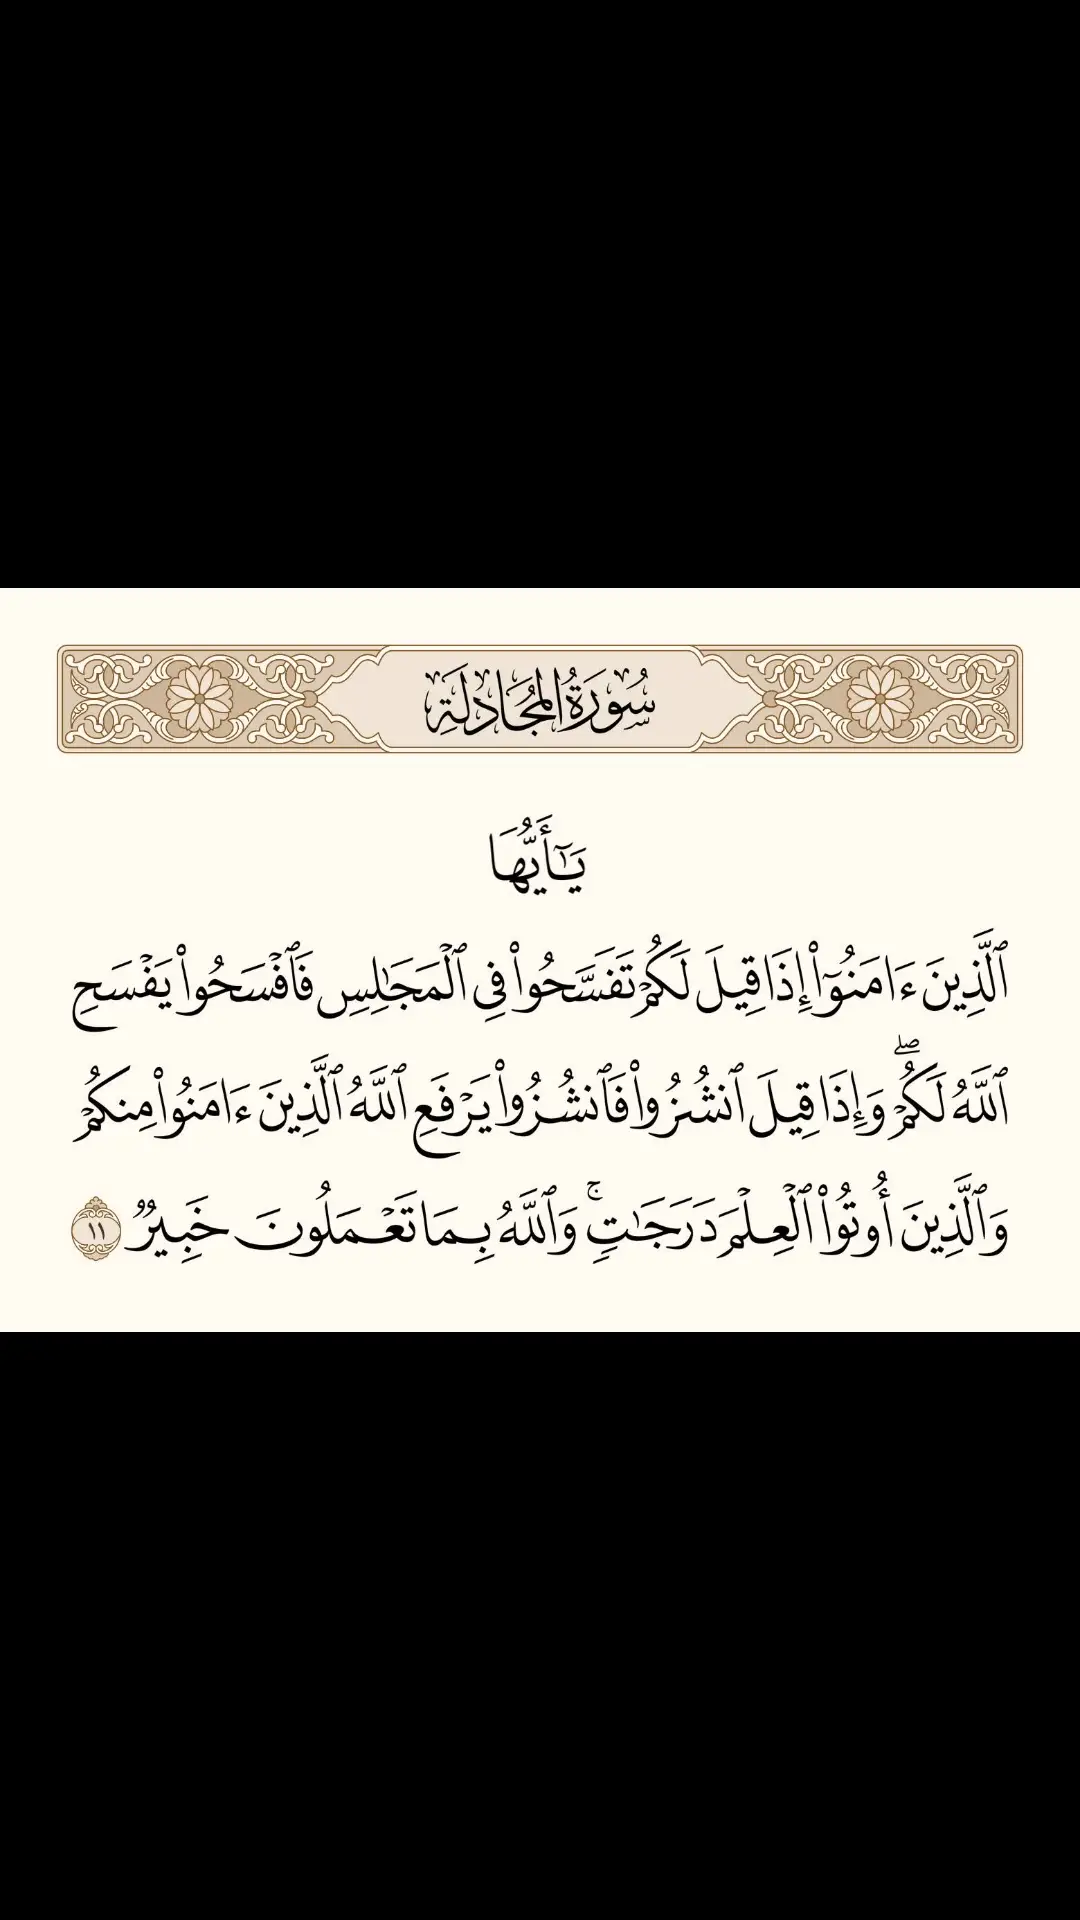 سُورَةُ المُجَادلَةِ
يَـٰٓأَيُّهَا
ٱلَّذِينَ ءَامَنُوٓا۟ إِذَا قِيلَ لَكُمْ تَفَسَّحُوا۟ فِى ٱلْمَجَـٰلِسِ فَٱفْسَحُوا۟ يَفْسَحِ
ٱللَّهُ لَكُمْ ۖ وَإِذَا قِيلَ ٱنشُزُوا۟ فَٱنشُزُوا۟ يَرْفَعِ ٱللَّهُ ٱلَّذِينَ ءَامَنُوا۟ مِنكُمْ
وَٱلَّذِينَ أُوتُوا۟ ٱلْعِلْمَ دَرَجَـٰتٍ ۚ وَٱللَّهُ بِمَا تَعْمَلُونَ خَبِيرٌ ١١